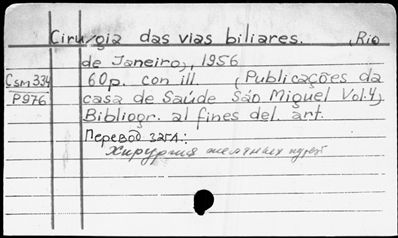 Cirurgia das vias biliares. (Rio
de Janeiro), 1956
Csm 334 60p. con ill (Publicações da
P976 casa de Saúde São Miguel Vol.4)
Bibliogr. al fines del. art.
Перевод загл.:
Хирургия желчных путей